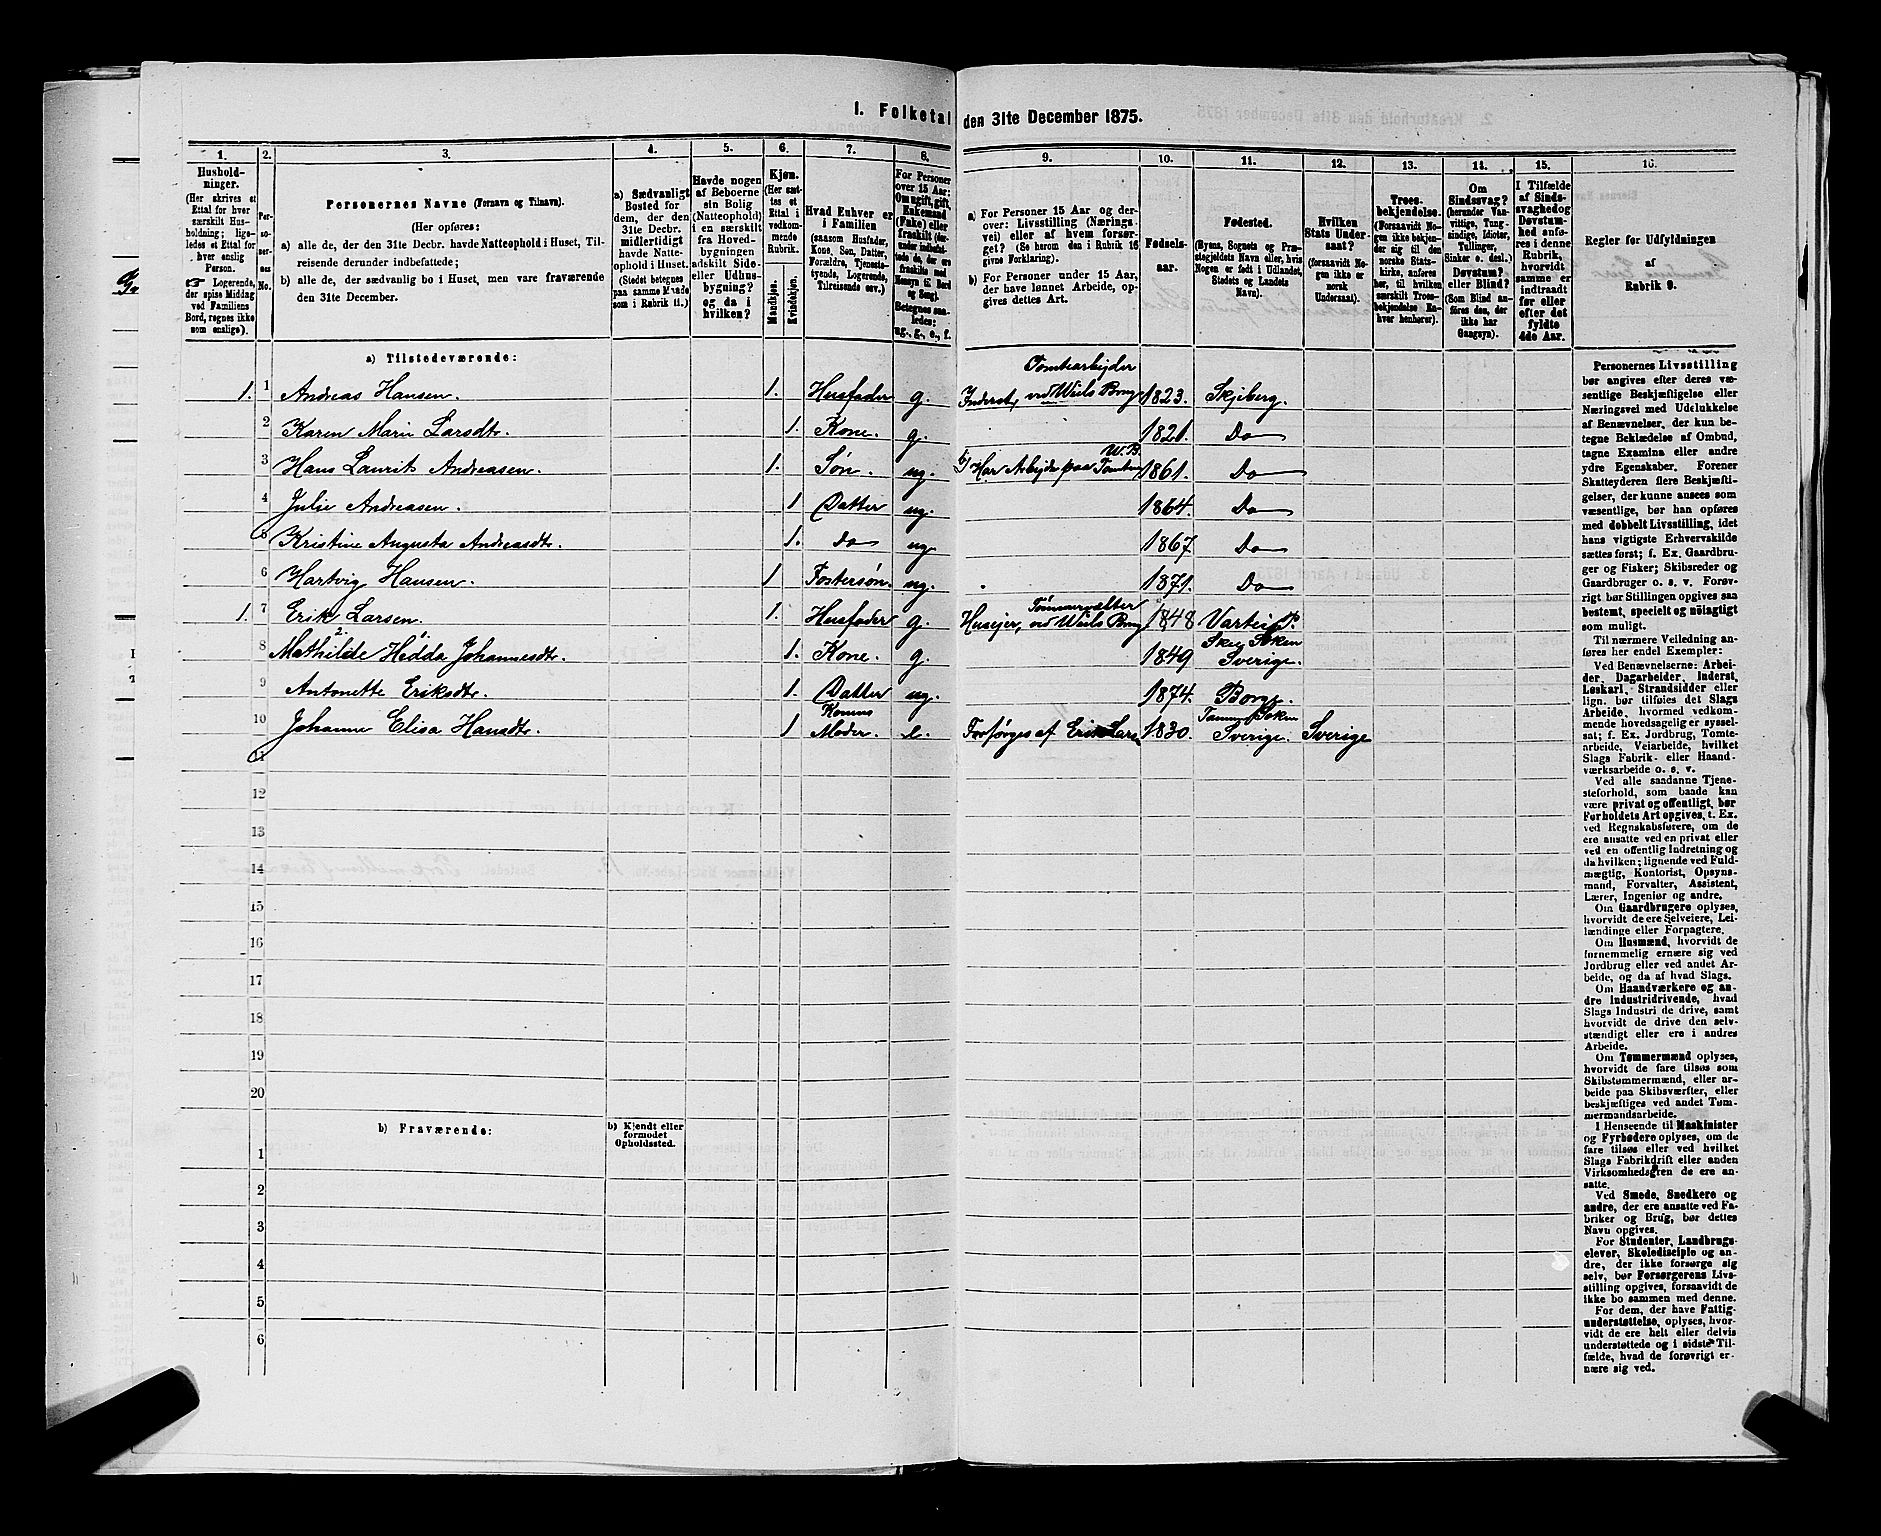 I. Folketal den 31te December 1875.
1. 2. 3. 4. 5. 6. 7. 8. 9. 10. 11. 12. 13. 14. 15. 16.
Hushold-
ninger.
(Her skrives et
Ettal for hver
særskilt Hus-
holdning; lige-
ledes et Ettal for
hver enslig
Person.
☞ Logerende,
der spise Middag
ved Familiens
Bord, regnes ikke
som enslige).
Per-
so-
ner-
nes
No.
Personernes Navne (Fornavn og Tilnavn).
(Her opføres:
a) alle de, der den 31te Decbr. havde Natteophold i Huset, Til-
reisende derunder indbefattede;
b) alle de, der sædvanlig bo i Huset, men vare fraværende
den 31te December.
a) Sædvanligt
Bosted for
dem, der den
31te Decbr.
midlertidigt
havde Natte-
ophold i Huset.
(Stedet betegnes
paa samme Maade
som i Rubrik 11.)
Havde nogen
af Beboerne
sin Bolig
(Natteophold)
i en særskilt
fra Hoved-
bygningen
adskilt Side-
eller Udhus-
bygning?
og da i
hvilken?
Kjøn.
(Her sæt-
tes et
Ettal i
vedkom-
mende
Rubrik.
Mandkjøn.
Kvindekjøn.
Hvad Enhver er
i Familien
(saasom Husfader,
Kone, Søn, Datter,
Forældre, Tjeneste-
tyende, Logerende,
Tilreisende osv.)
For Personer
over 15 Aar:
Om ugift, gift,
Enkemand
(Enke) eller
fraskilt
Betegnes saa-
ledes:
ug., g., e., f.
a) For Personer 15 Aar og der-
over: Livsstilling (Nærings-
vei) eller af hvem forsør-
get? (Se herom den i Rubrik 16
givne Forklaring).
b) For Personer under 15 Aar,
der have lønnet Arbeide, op-
gives dettes Art.
Fødsels-
aar.
Fødested.
(Byens, Sognets og Præ-
stegjeldets Navn eller, hvis
Nogen er født i Udlandet,
Stedets og Landets
Navn).
Hvilken
Stats Under-
saat?
(forsaavidt No-
gen ikke er
norsk
Undersaat).
Troes-
bekjendelse.
(Forsaavidt No-
gen ikke bekjen-
der sig til den
norske Stats-
kirke, anføres
her, til hvilken
særskilt Troes-
bekjendelse En-
hver henhører).
Om
Sindssvag?
(herunder Van-
vittige, Tung-
sindige, Idioter,
Tullinger,
Sinker o. desl.)
Døvstum?
eller Blind?
(Som Blind an-
føres den, der
ikke har
Gangsyn).
I Tilfælde
af Sinds-
svaghed og
Døvstum-
hed anfø-
res i denne
Rubrik,
hvorvidt
samme er
indtraadt
før eller
efter det
fyldte
4de Aar.
Regler for Udfyldningen
af
Rubrik 9.
a) Tilstedeværende:
1. 1 Andreas Hansen. 1. Husfader g. Inderst, Tomtearbejder ved Weils Brug 1823. Skjeberg.
2 Karen Marie Larsdtr. 1. Kone. g. 1821. Do
3 Hans Laurits Andreasen. 1. Søn. ug. b) Har Arbejde paa Tomten W.B. 1861. Do
4 Julie Andreasen. 1 Datter ug. 1864. Do
5 Kristine Augusta Andreasdtr. 1. do ug. 1867. Do
6 Hartvig Hansen. 1 Fostersøn. ug. 1871. Do
1. 7 Erik Larsen. 1. Husfader g. Husejer, Tømmervælter ved Weils Brug 1848
8 Mathilde 2. Hedda Johannesdtr. 1. Kone. g. 1849 Skee Soken Sverige.
9 Antonette Eriksdtr. 1. Datter ug. 1874. Borge.
10 Johanne Elisa Hansdtr. 1 Konens Moder. e. Forsørges af Erik Larsen 1830. Soken Sverige. Sverige
11
12
13
14
15
16
17
18
19
20
b) Fraværende:
b) Kjendt eller
formodet
Opholdssted.
1
2
3
4
5
6
Personernes Livsstilling
bør angives efter deres væ-
sentlige Beskjæftigelse eller
Næringsvei med Udelukkelse
af Benævnelser, der kun be-
tegne Beklædelse af Ombud,
tagne Examina eller andre
ydre Egenskaber. Forener
Skatteyderen flere Beskjæfti-
gelser, der kunne ansees som
væsentlige, bør han opføres
med dobbelt Livsstilling, idet
hans vigtigste Erhvervskilde
sættes først; f. Ex. Gaardbru-
ger og Fisker; Skibsreder og
Gaardbruger o. s. v. Forøv-
rigt bør Stillingen opgives saa
bestemt, specielt og nøiagtigt
som muligt.
Til nærmere Veiledning an-
føres her endel Exempler:
Ved Benævnelserne: Arbei-
der, Dagarbeider, Inderst,
Løskarl, Strandsidder eller
lign. bør tilføies det Slags
Arbeide, hvormed vedkom-
mende hovedsagelig er syssel-
sat; f. Ex. Jordbrug, Tomte-
arbeide, Veiarbeide, hvilket
Slags Fabrik- eller Haand-
værksarbeide o. s. v.
Ved alle saadanne Tjene-
steforhold, som baade kan
være privat og offentligt, bør
Forholdets Art opgives, t. Ex.
ved Regnskabsførere, om de
ere ansatte ved en privat eller
ved en offentlig Indretning og
da hvilken; lignende ved Fuld-
mægtig, Kontorist, Opsyns-
mand, Forvalter, Assistent,
Lærer, Ingeniør og andre.
Om Gaardbrugere oplyses,
hvorvidt de ere Selveiere, Lei-
lændinge eller Forpagtere.
Om Husmænd, hvorvidt de
fornemmelig ernære sig ved
Jordbrug eller ved andet Ar-
beide, og da af hvad Slags.
Om Haandværkere og an-
dre Industridrivende, hvad
Slags Industri de drive, samt
hvorvidt de drive den selv-
stændigt eller ere i andres
Arbeide.
Om Tømmermænd oplyses,
hvorvidt de fare tilsøs som
Skibstømmermænd, eller ar-
beide paa Skibsværfter, eller
beskjæftiges ved andet Tøm-
mermandsarbeide.
I Henseende til Maskinister
og Fyrbødere oplyses, om de
fare tilsøs eller ved hvilket
Slags Fabrikdrift eller anden
Virksomhedsgren de ere an-
satte.
Ved Smede, Snedkere og
andre, der ere ansatte ved Fa-
briker og Brug, bør dettes
Navn opgives.
For Studenter, Landbrugs-
elever, Skoledisciple og an-
dre, der ikke forsørge sig
selv, bør Forsørgerens Livs-
stilling opgives, forsaavidt de
ikke bo sammen med denne.
For dem, der have Fattig-
understøttelse, oplyses, hvor-
vidt de ere helt eller delvis
understøttede og i sidste Til-
fælde, hvad de forøvrigt er-
nære sig ved.